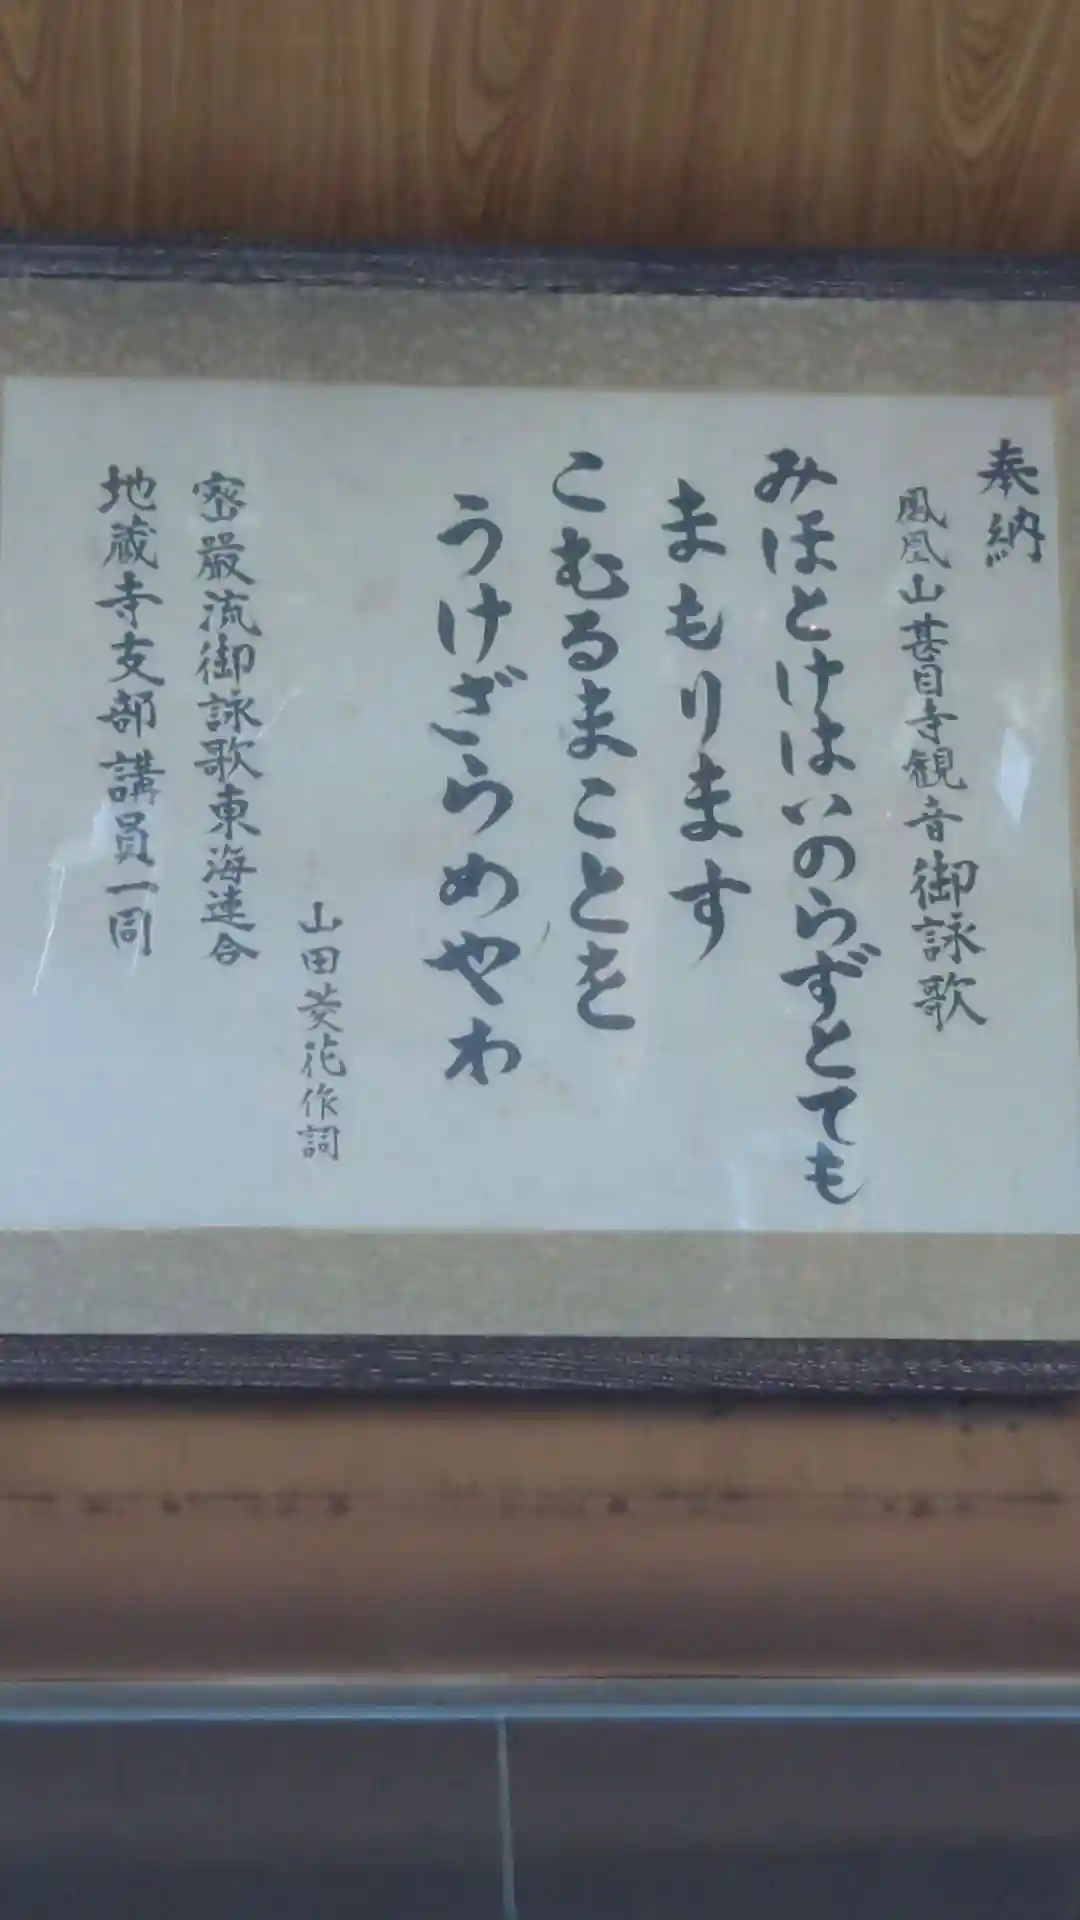 奉納
鳳凰山甚目寺観音御詠歌
みほとけはいのらずとても
まもります
こむるまことを
うけざらめやわ
山田菱花作詞
密厳流御詠歌東海連合
地蔵寺支部講員一同